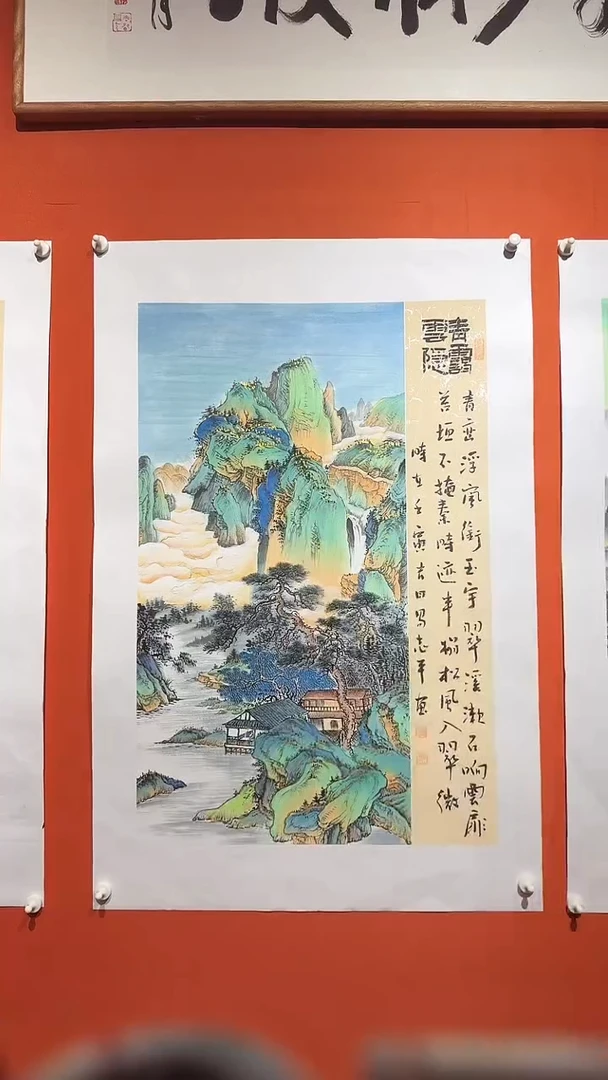 青靄
雲隱
青峦浮嵐銜玉宇翠溪漱石响雲扉
苔垣不掩秦時迹半榻松風入翠微
時在壬寅吉日志平画